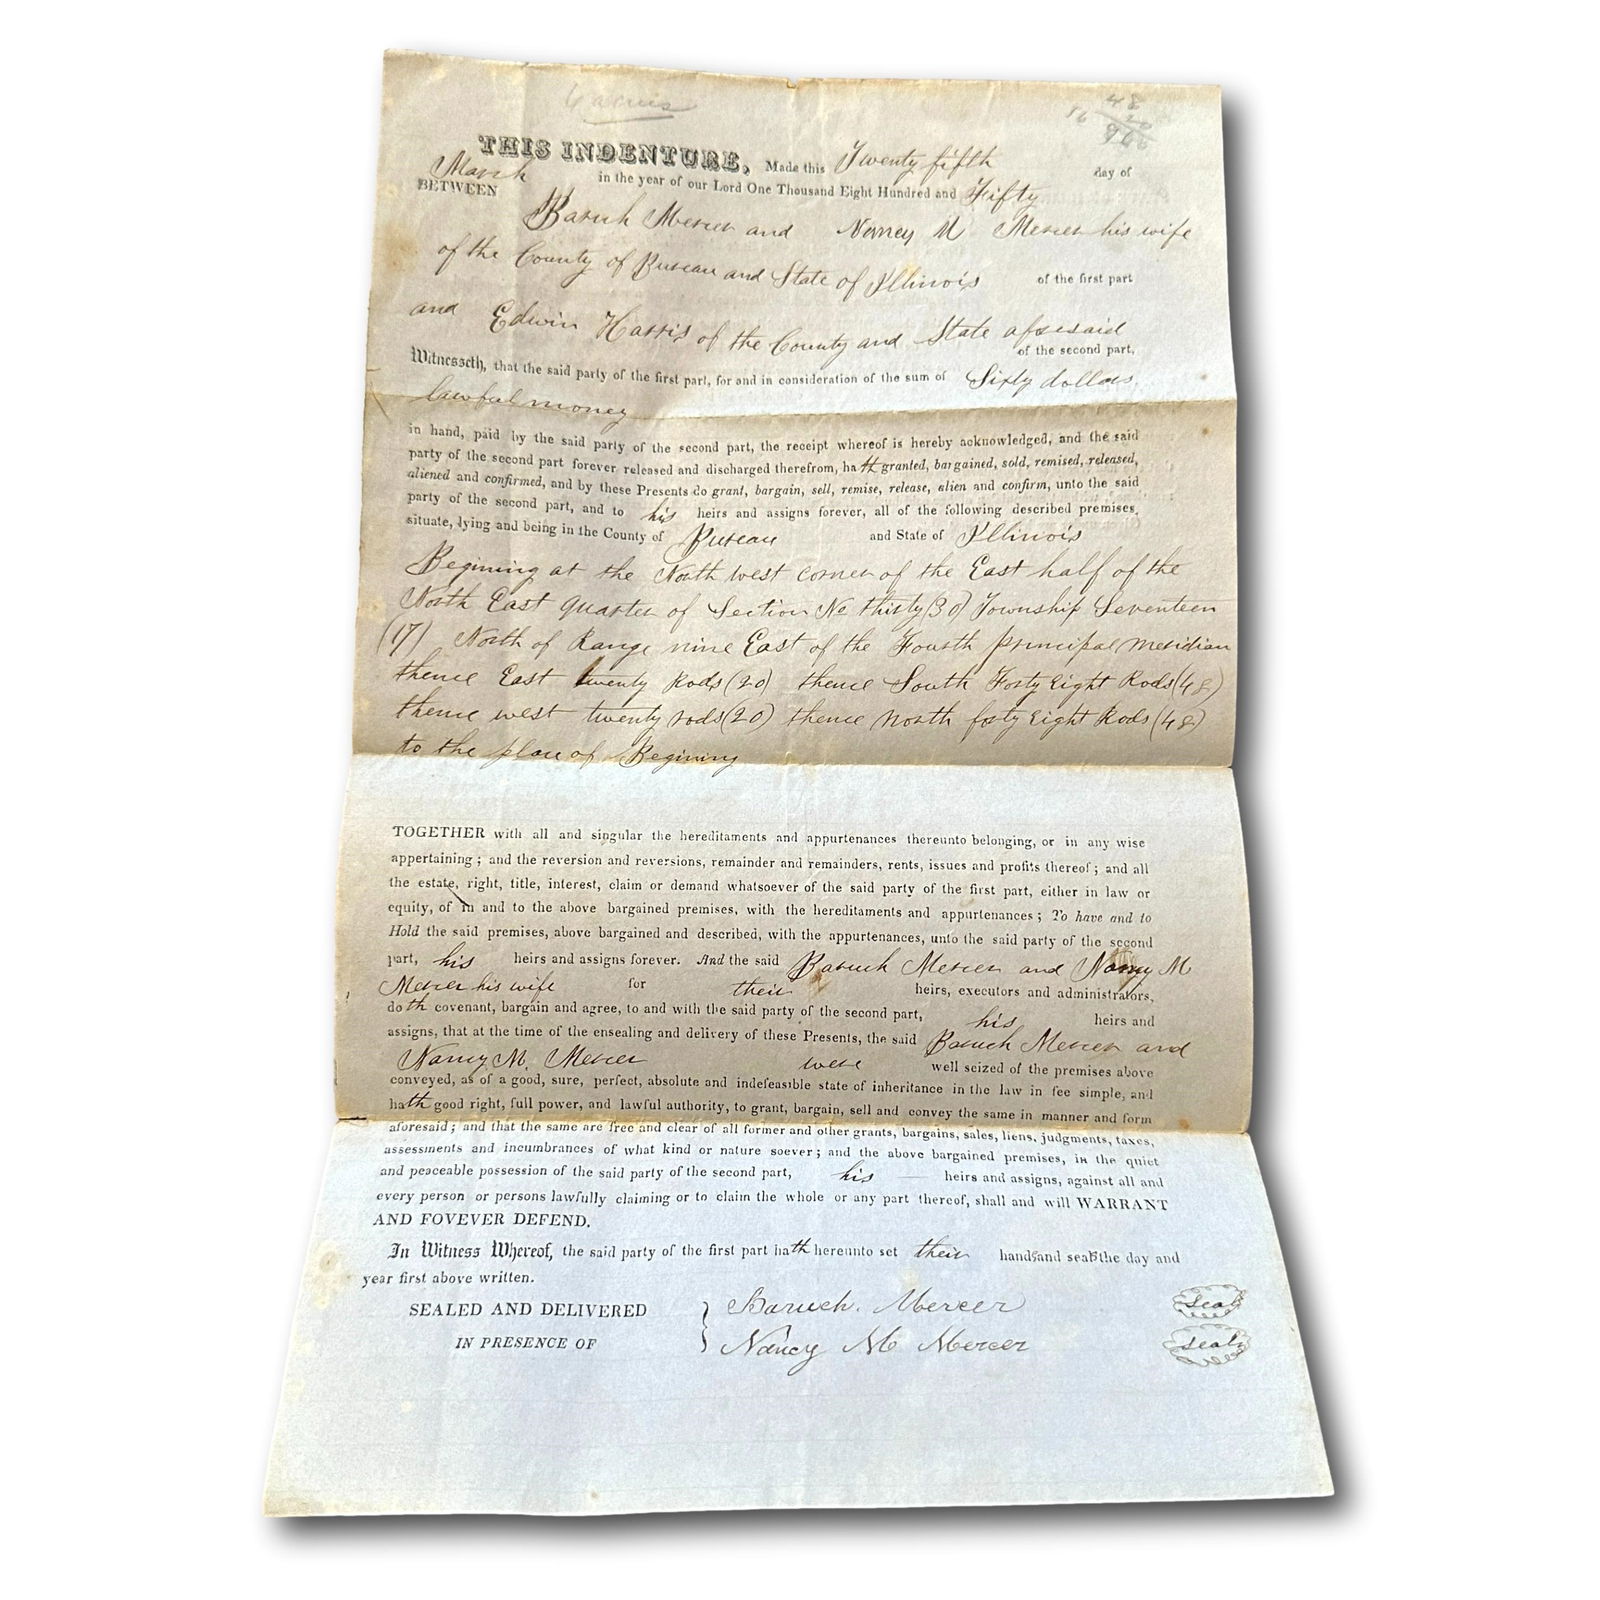 6 acres
48
16 20
960
THIS INDENTURE, Made this Twenty fifth day of
March in the year of our Lord One Thousand Eight Hundred and Fifty
BETWEEN
Baruch Mercer and Nancy M Mercer his wife
of the County of Bureau and State of Illinois of the first part
and Edwin Harris of the County and State aforesaid
of the second part,
Witnesseth, that the said party of the first part, for and in consideration of the sum of Sixty dollars
lawful money
in hand, paid by the said party of the second part, the receipt whereof is hereby acknowledged, and the said
party of the second part forever released and discharged therefrom, hath granted, bargained, sold, remised, released,
aliened and confirmed, and by these Presents do grant, bargain, sell, remise, release, alien and confirm, unto the said
party of the second part, and to his heirs and assigns forever, all of the following described premises,
situate, lying and being in the County of Bureau and State of Illinois
Begining at the North west corner of the East half of the
North East quarter of Section No thirty (30) Township Seventeen
(17) North of Range nine East of the Fourth principal meridian
thence East twenty Rods (20) thence South Forty Eight Rods (48)
thence west twenty rods (20) thence north forty Eight Rods (48)
to the place of Begining
TOGETHER with all and singular the hereditaments and appurtenances thereunto belonging, or in any wise
appertaining; and the reversion and reversions, remainder and remainders, rents, issues and profits thereof; and all
the estate, right, title, interest, claim or demand whatsoever of the said party of the first part, either in law or
equity, of in and to the above bargained premises, with the hereditaments and appurtenances; To have and to
Hold the said premises, above bargained and described, with the appurtenances, unto the said party of the second
part, his heirs and assigns forever. And the said Baruch Mercer and Nancy M
Mercer his wife for their heirs, executors and administrators,
doth covenant, bargain and agree, to and with the said party of the second part, his heirs and
assigns, that at the time of the ensealing and delivery of these Presents, the said Baruch Mercer and
Nancy M. Mercer were well seized of the premises above
conveyed, as of a good, sure, perfect, absolute and indefeasible state of inheritance in the law in fee simple, and
hath good right, full power, and lawful authority, to grant, bargain, sell and convey the same in manner and form
aforesaid; and that the same are free and clear of all former and other grants, bargains, sales, liens, judgments, taxes,
assessments and incumbrances of what kind or nature soever; and the above bargained premises, in the quiet
and peaceable possession of the said party of the second part, his heirs and assigns, against all and
every person or persons lawfully claiming or to claim the whole or any part thereof, shall and will WARRANT
AND FOVEVER DEFEND.
In Witness Whereof, the said party of the first part hath hereunto set their hands and seals the day and
year first above written.
SEALED AND DELIVERED } Baruch. Mercer Seal
IN PRESENCE OF Nancy M Mercer Seal